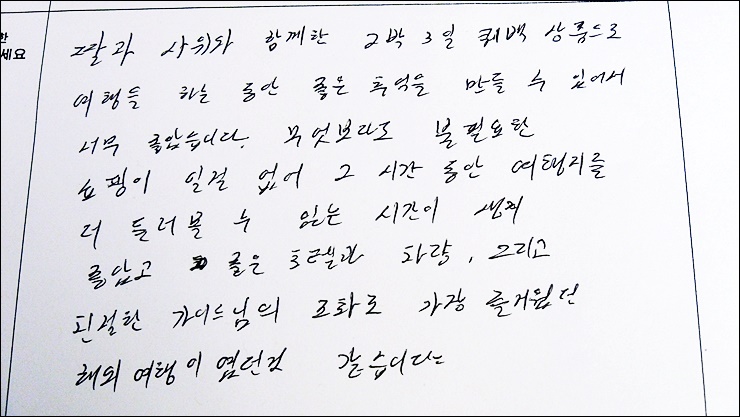 한
세요
딸과 사위와 함께한 2박 3일 퀘백 상품으로
여행을 하는 동안 좋은 추억을 만들 수 있어서
너무 좋았습니다. 무엇보다도 불필요한
쇼핑이 일절 없어 그 시간 동안 여행지를
더 둘러볼 수 있는 시간이 생겨
좋았고 좋은 호텔과 차량, 그리고
친절한 가이드님의 조화로 가장 즐거웠던
해외여행이 였던것 같습니다~